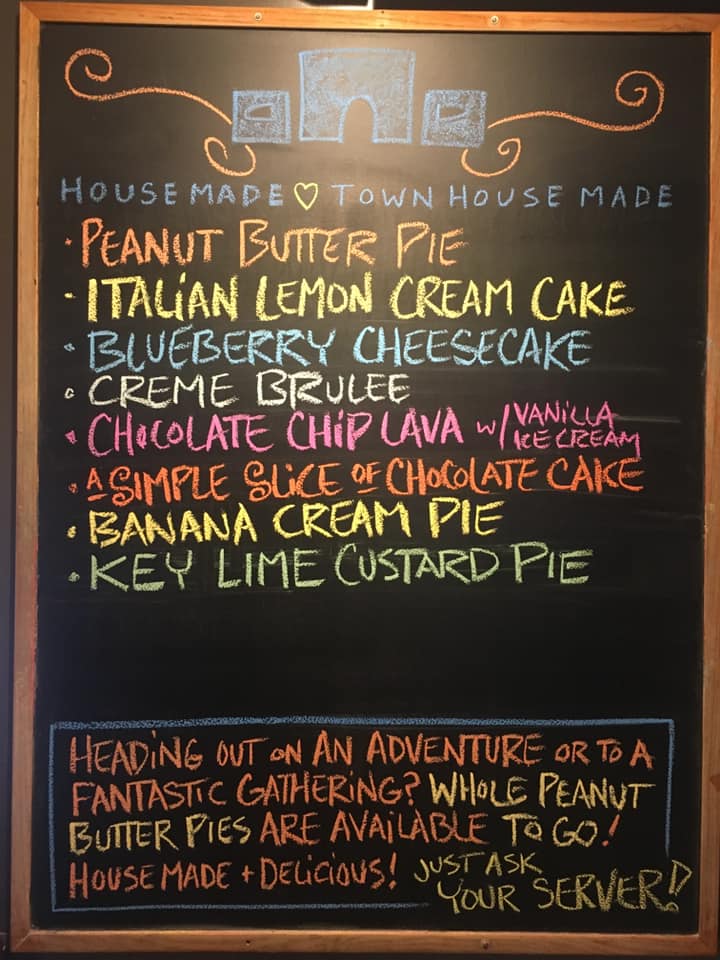 HOUSE MADE ♡ TOWN HOUSE MADE
· PEANUT BUTTER PIE
· ITALIAN LEMON CREAM CAKE
· BLUEBERRY CHEESECAKE
· CREME BRULEE
· CHOCOLATE CHIP LAVA w/ VANILLA
ICE CREAM
· A SIMPLE SLICE OF CHOCOLATE CAKE
· BANANA CREAM PIE
· KEY LIME CUSTARD PIE
HEADING OUT ON AN ADVENTURE OR TO A
FANTASTIC GATHERING? WHOLE PEANUT
BUTTER PIES ARE AVAILABLE TO GO!
HOUSE MADE + DELICIOUS! JUST ASK
YOUR SERVER!